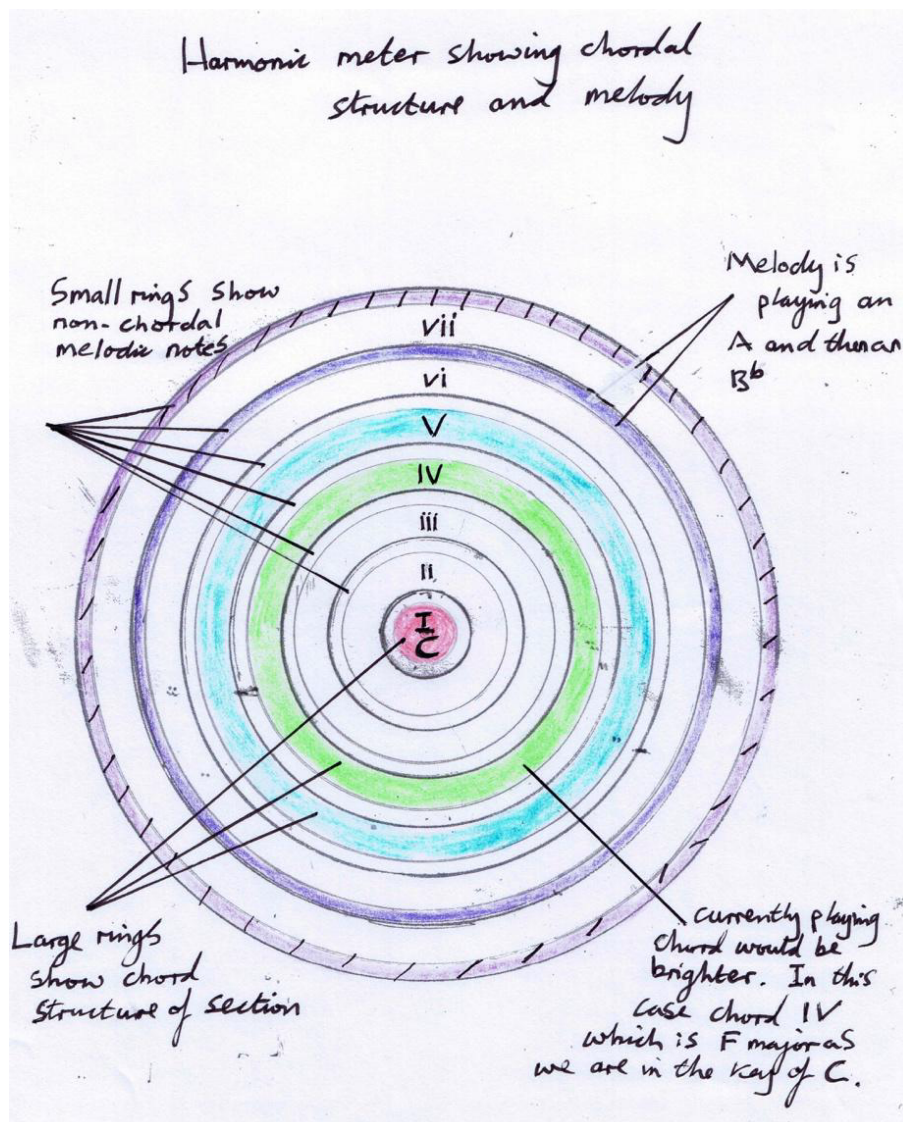 Harmonic meter showing chordal
structure and melody
Small rings show
non-chordal
melodic notes
Melody is
playing an
A and then an
B♭
vii
vi
V
IV
iii
ii
I
C
Large rings
show chord
structure of section
currently playing
chord would be
brighter. In this
case chord IV
which is F major as
we are in the key of C.